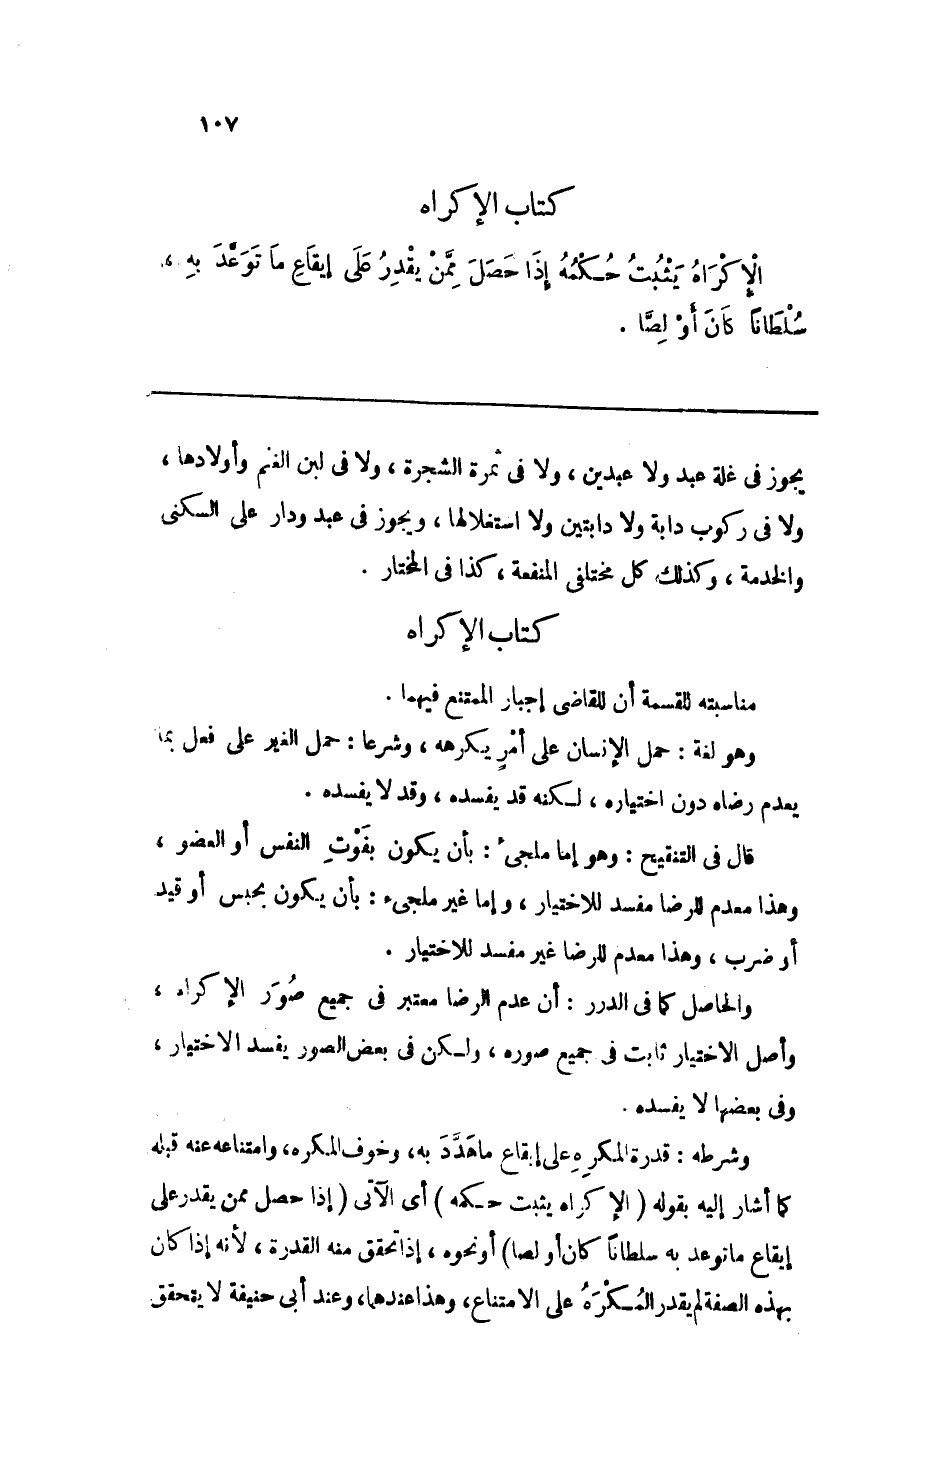 ١٠٧
كتاب الإكراه
الْإِكْرَاهُ يَثْبُتُ حُكْمُهُ إِذَا حَصَلَ مِمَّنْ يَقْدِرُ عَلَى إيقَاعِ مَا تَوَعَّدَ بِهِ ،
سُلْطَانًا كَانَ أَوْ لِصًّا .
يجوز فى غلة عبد ولا عبدين ، ولا فى ثمرة الشجرة ، ولا فى لبن الغنم وأولادها ،
ولا فى ركوب دابة ولا دابتين ولا استغلالها ، ويجوز فى عبد ودار على السكنى
والخدمة ، وكذلك كل مختلفى المنفعة ، كذا فى المختار .
كتاب الإكراه
مناسبته للقسمة أن للقاضى إجبار الممتنع فيهما .
وهو لغة : حمل الإنسان على أمْرٍ يكرهه ، وشرعا : حمل الغير على فعل بما
يعدم رضاه دون اختياره ، لكنه قد يفسده ، وقد لا يفسده .
قال فى التنقيح : وهو إما ملجىء : بأن يكون بفَوْتِ النفس أو العضو ،
وهذا معدم للرضا مفسد للاختيار ، وإما غير ملجىء : بأن يكون بحبس أو قيد
أو ضرب ، وهذا معدم للرضا غير مفسد للاختيار .
والحاصل كما فى الدرر : أن عدم الرضا معتبر فى جميع صُوَر الإكراه ،
وأصل الاختيار ثابت فى جميع صوره ، ولكن فى بعض الصور يفسد الاختيار ،
وفى بعضها لا يفسده .
وشرطه : قدرة المكرِهِ على إيقاع ما هَدَّدَ به ، وخوف المكره ، وامتناعه عنه قبله
كما أشار إليه بقوله ( الإكراه يثبت حكمه ) أى الآتى ( إذا حصل ممن يقدر على
إيقاع ما توعد به سلطاناً كان أو لصا ) أو نحوه ، إذا تحقق منه القدرة ، لأنه إذا كان
بهذه الصفة لم يقدر المُكْرَهُ على الامتناع ، وهذا عندهما ، وعند أبى حنيفة لا يتحقق